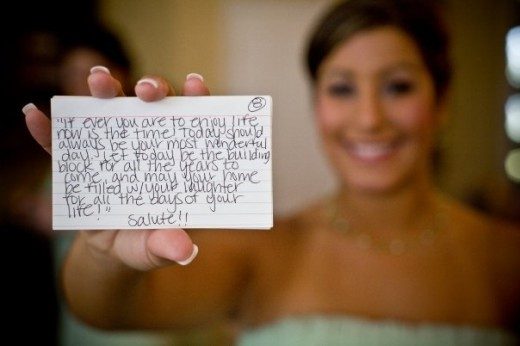 8
"If ever you are to enjoy life
now is the time! Today should
always be your most wonderful
day. Let today be the building
block for all the years to
come, and may your home
be filled w/your laughter
for all the days of your
life!"
Salute!!